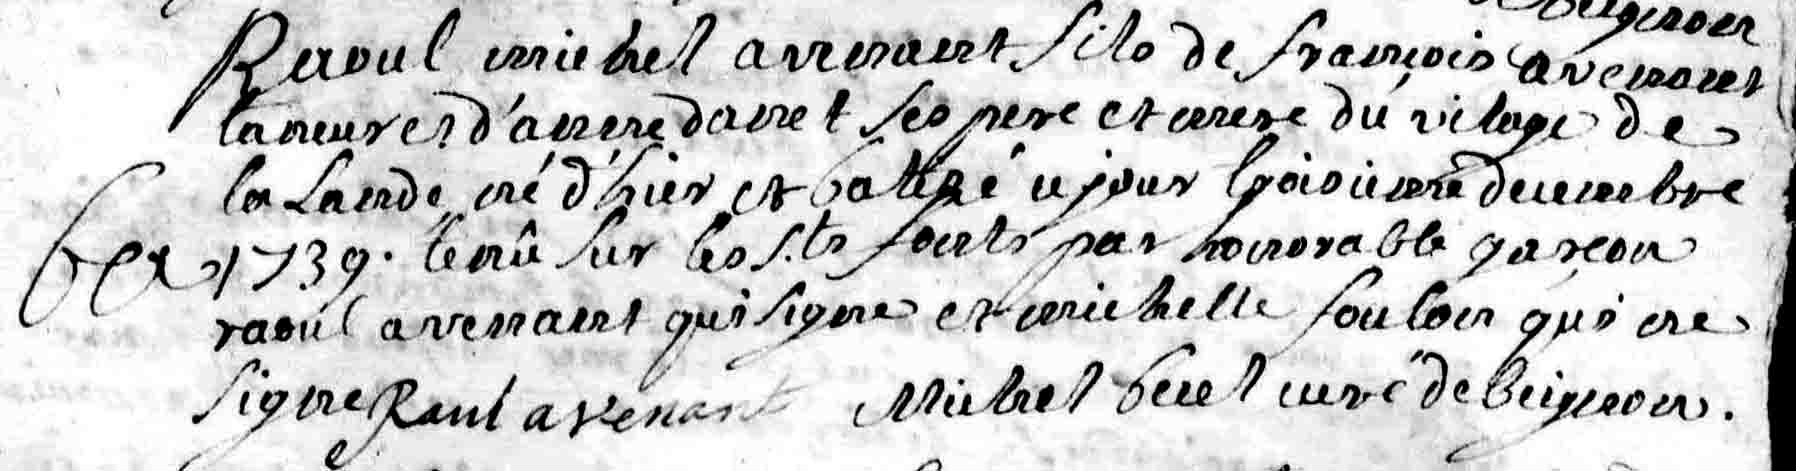 de beignon
Raoul michel avenant fils de francois avenant
tanneur et d'anne danet ses pere et mere du vilage de
la Lande né d'hier et batizé ce jour troisieme decembre
1739. tenû sur les s.ts fonts par honorable garcon
raoul avenant qui signe et michelle foulon qui ne
signe Raul avenant Michel becel curé de beignon.